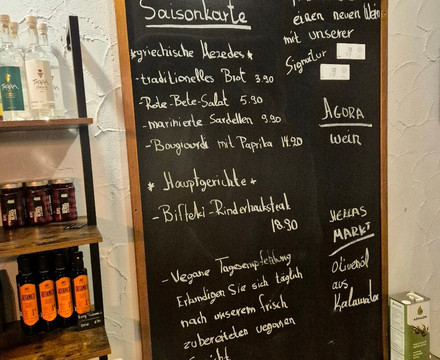 Saisonkarte
*griechische Mezedes*
-traditionelles Brot 3.90
-Rote-Bete-Salat 5.90
-marinierte Sardellen 9.90
-Bougiourdi mit Paprika 14.90
* Hauptgerichte *
-Bifteki-Rinderhacksteak
18.90
-Vegane Tagesempfehlung
Erkundigen Sie sich täglich
nach unserem frisch
zubereiteten veganen
einen neuen Wein
mit unserer
Signatur
AGORA
wein
HELLAS
MARKT
Olivenöl
aus
Kalamata